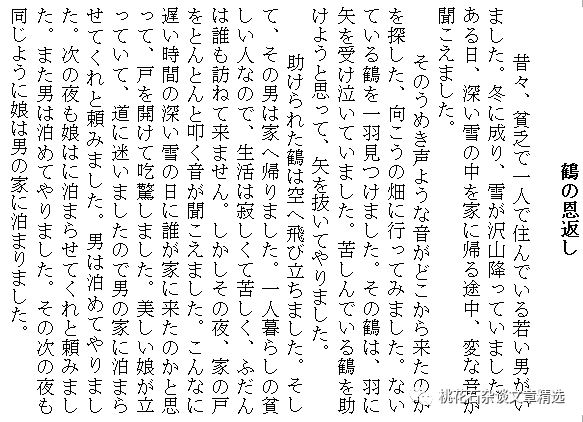 鶴の恩返し
昔々、貧乏で一人で住んでいる若い男がい
ました。冬に成り、雪が沢山降っていました。
ある日、深い雪の中を家に帰る途中、変な音が
聞こえました。
そのうめき声ような音がどこから来たのか
を探した、向こうの畑に行ってみました。ない
ている鶴を一羽見つけました。その鶴は、羽に
矢を受け泣いていました。苦しんでいる鶴を助
けようと思って、矢を抜いてやりました。
助けられた鶴は空へ飛び立ちました。そし
て、その男は家へ帰りました。一人暮らしの貧
しい人なので、生活は寂しくて苦しく、ふだん
は誰も訪ねて来ません。しかしその夜、家の戸
をとんとんと叩く音が聞こえました。こんなに
遅い時間の深い雪の日に誰が家に来たのかと思
って、戸を開けて吃驚しました。美しい娘が立
っていて、道に迷いましたので男の家に泊まら
せてくれと頼みました。男は泊めてやりまし
た。次の夜も娘はに泊まらせてくれと頼みまし
た。また男は泊めてやりました。その次の夜も
同じように娘は男の家に泊まりました。
桃花石杂谈文章精选